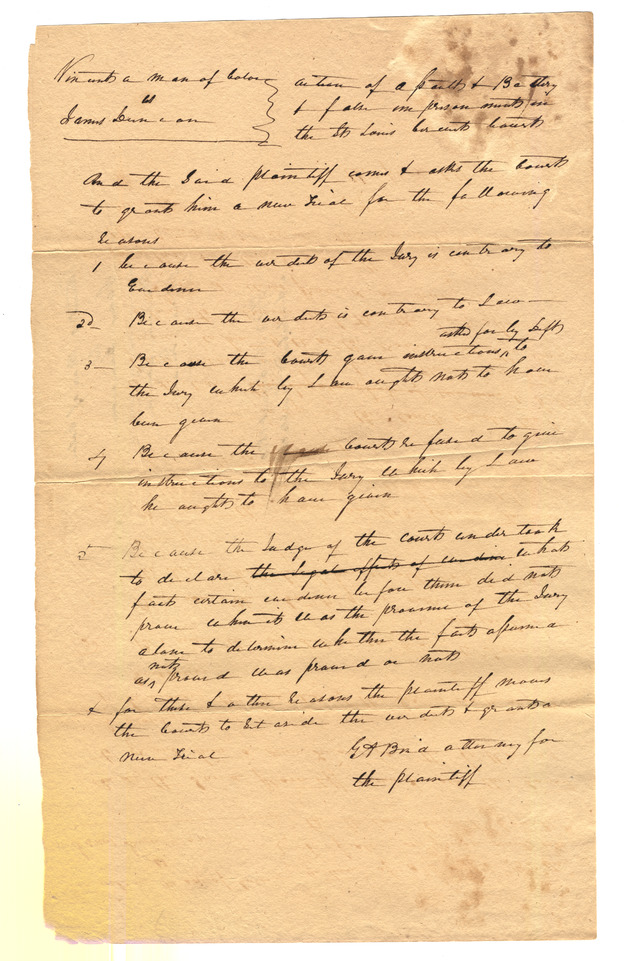 Vincent a man of Color
vs
James Duncan
action of assault & Battery
& false imprisonment in
the St Louis Circuit Court
And the Said plaintiff comes & asks the Court
to grant him a new Trial for the following
reasons
1 because the verdict of the Jury is contrary to
Evidence
2d Because the verdict is contrary to Law
3 Because the Court gave instructions asked for by Deft to
the Jury which by Law ought not to have
been given
4 Because the Court refused to give
instructions to the Jury which by Law
he ought to have given
5 Because the Judge of the court undertook
to declare the legal effect of evidence what
facts certain evidence before them did not
prove when it was the province of the Jury
alone to determine whether the fact assumed
as not proved was proved or not
& for these & other reasons the plaintiff moves
the Court to Set aside the verdict & grant a
new Trial
G A Bird attorney for
the plaintiff